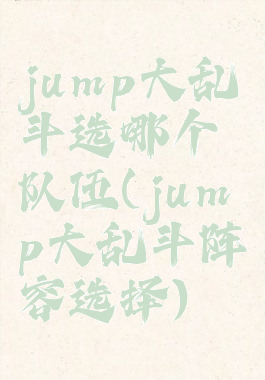 jump大乱
斗选哪个
队伍(jum
p大乱斗阵
容选择)